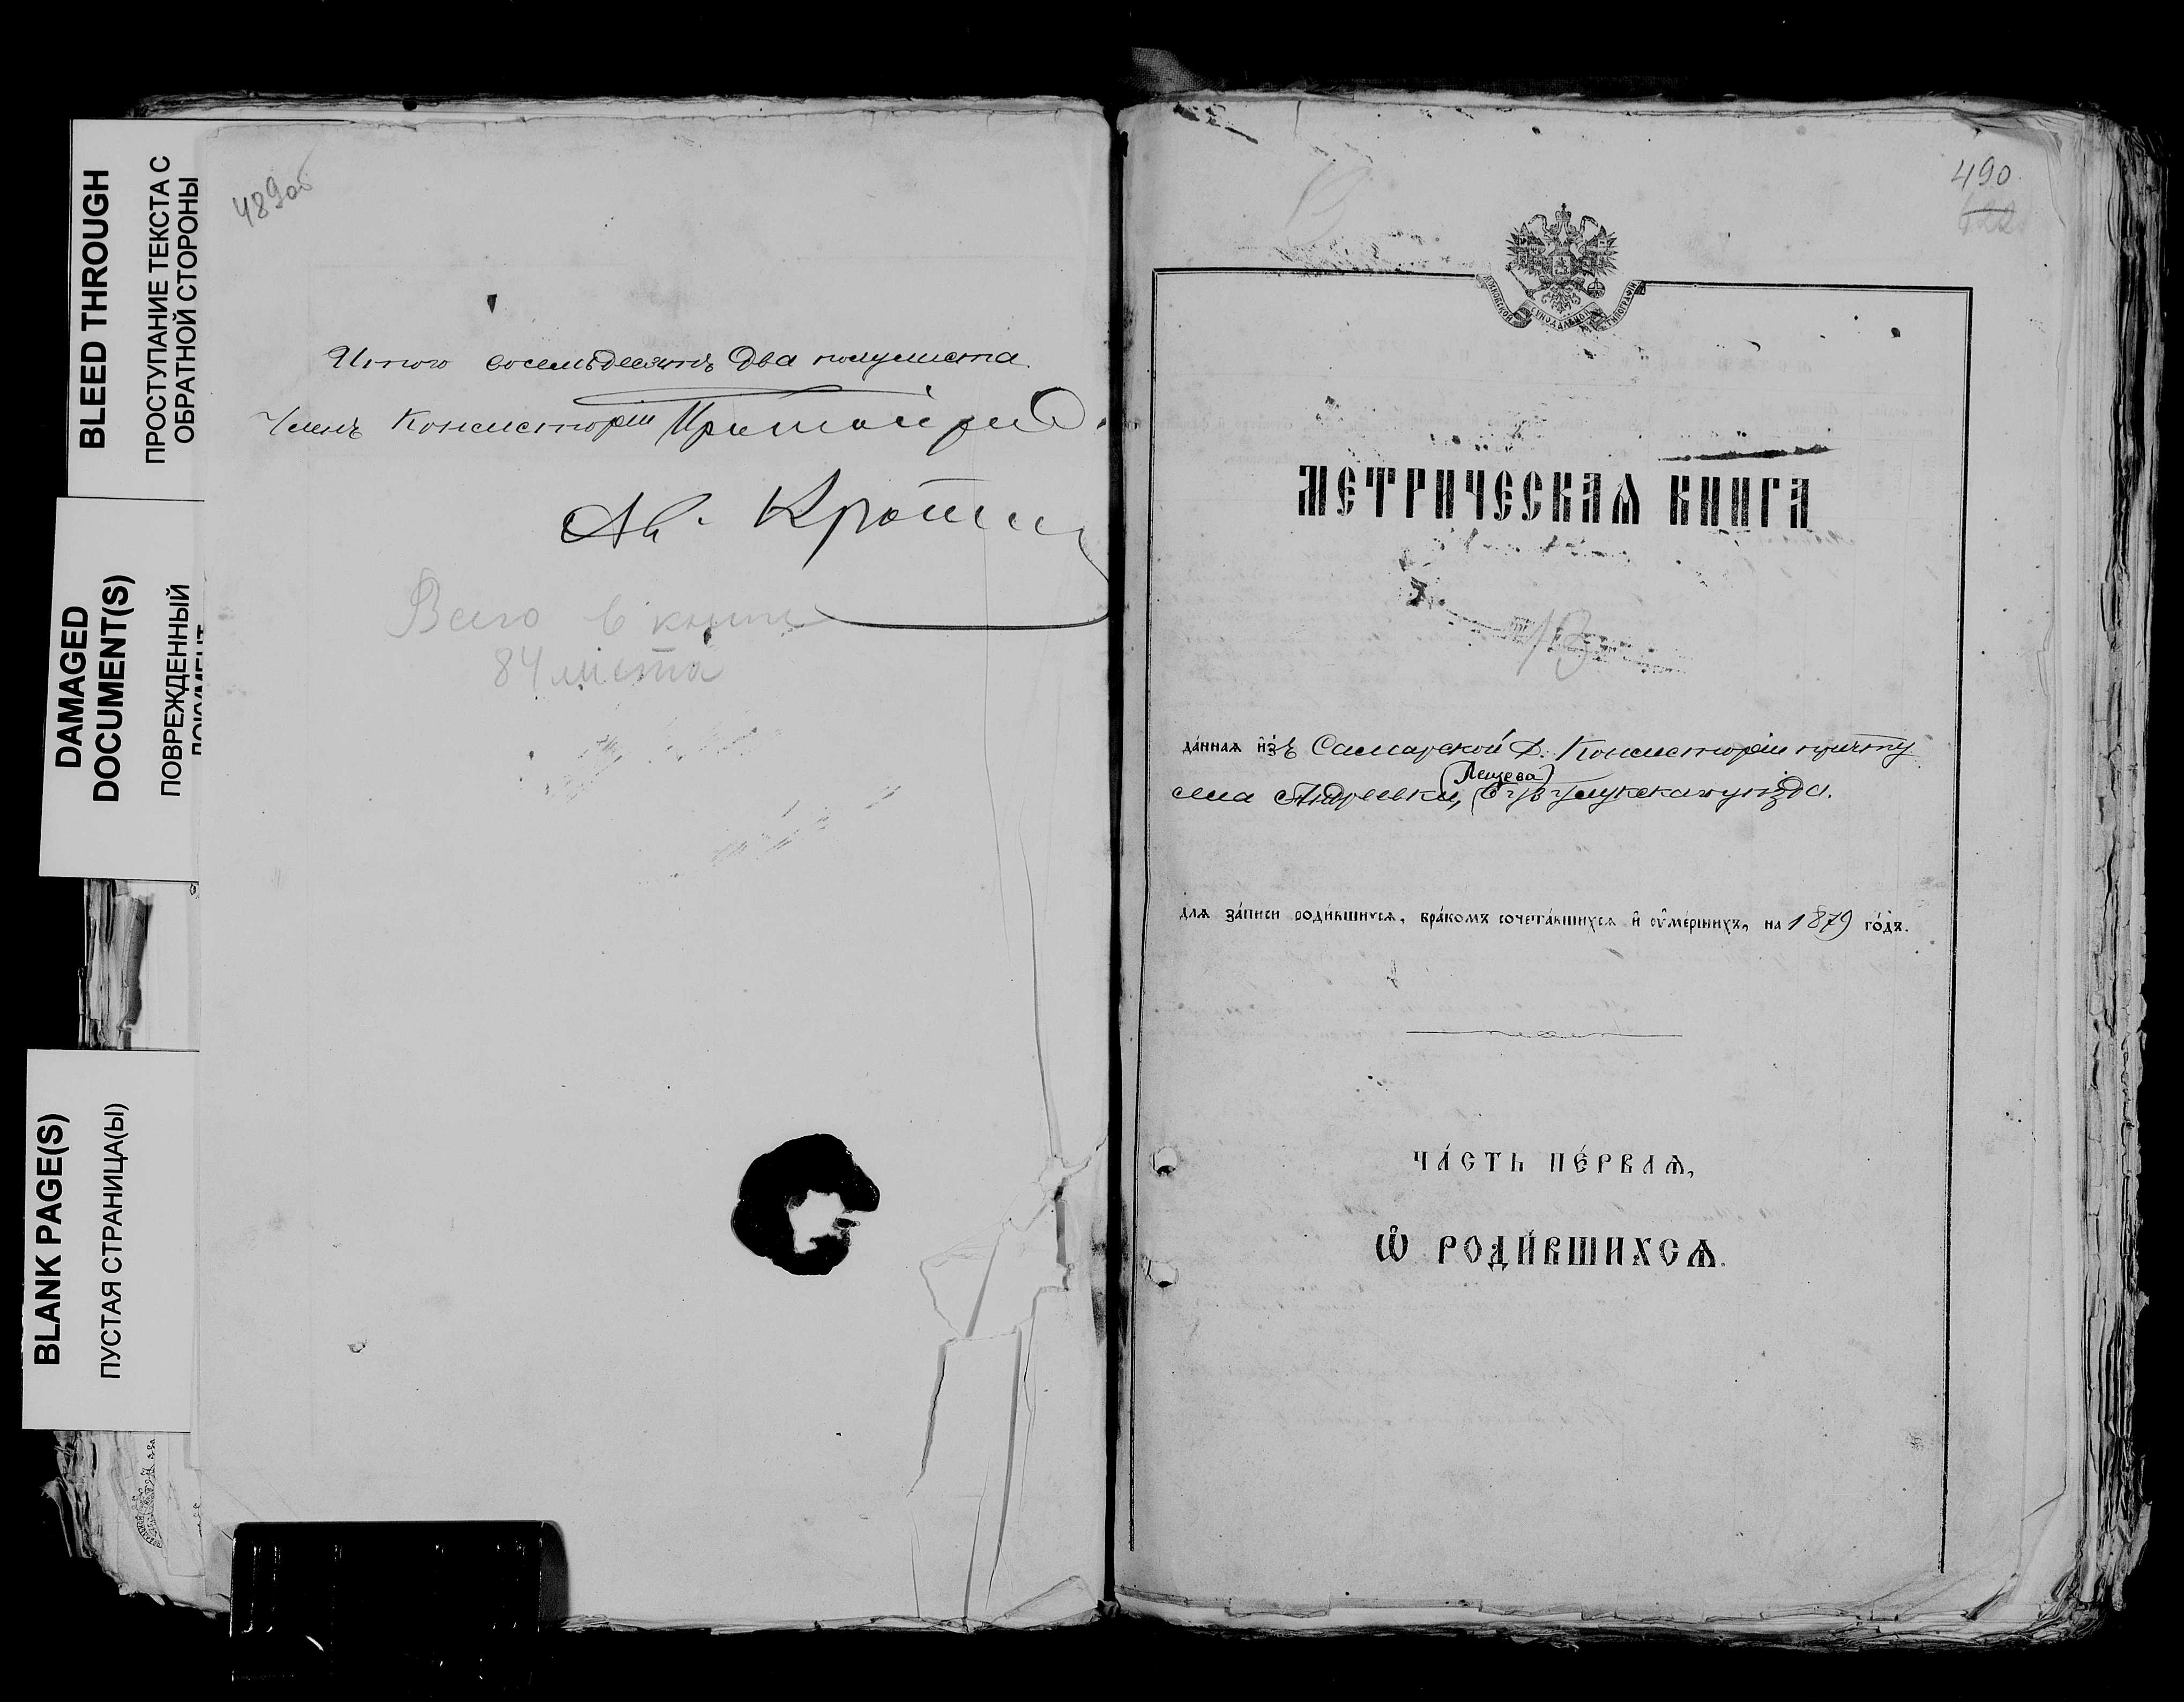 BLEED THROUGH
ПРОСТУПАНИЕ ТЕКСТА С
ОБРАТНОЙ СТОРОНЫ
DAMAGED
DOCUMENT(S)
ПОВРЕЖДЕННЫЙ
ДОКУМЕНТ
BLANK PAGE(S)
ПУСТАЯ СТРАНИЦА(Ы)
489об
Итого восемьдесятъ два полулиста
Членъ Консисторіи Протоіерей
Всего в книге
84 листа
490
622
МОСКОВСКОЙ СѴНОДАЛЬНОЙ ТИПОГРАФІИ
МЕТРИЧЕСКАѦ КНИГА
13
да́ннаѧ и҆з̾ Самарской Д. Консисторіи причту
(Лещева)
села Андреевки, Бузулукскаго уѣзда.
длѧ за́писи роди́вшихсѧ, бра́комъ сочета́вшихсѧ и҆ ѹ҆ме́ршихъ, на 1879 го́дъ.
ЧА́СТЬ ПЕ́РВАѦ,
Ѽ РОДИ́ВШИХСѦ.